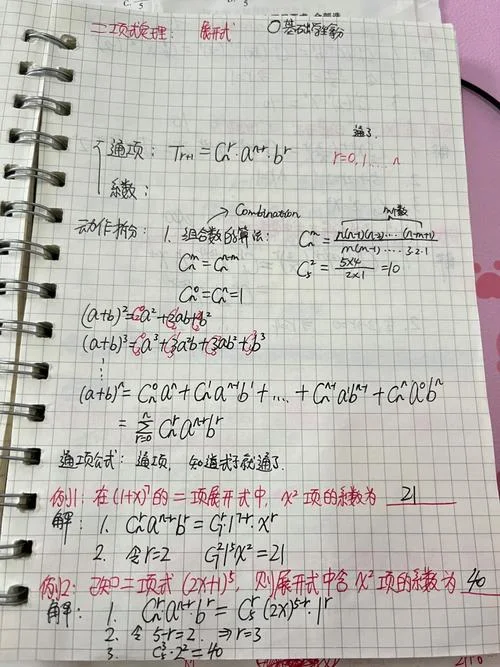 二项式定理： 展开式 〇基础学生拿分
通项： T_{r+1} = C_n^r · a^{n-r} · b^r 通了. r=0,1....n
系数：
动作拆分： 1. 组合数的算法： → Combination
C_n^m = C_n^{n-m} C_n^m = \frac{n(n-1)(n-2)...(n-m+1)}{m(m-1)....3·2·1} m个数
C_n^0 = C_n^n = 1 C_5^2 = \frac{5×4}{2×1} = 10
(a+b)^2 = C_2^0 a^2 + 2ab + b^2
(a+b)^3 = a^3 + 3a^2b + 3ab^2 + b^3
(a+b)^n = C_n^0 a^n + C_n^1 a^{n-1} b^1 + .... + C_n^{n-1} a^1 b^{n-1} + C_n^n a^0 b^n
= \sum_{r=0}^{n} C_n^r a^{n-r} b^r
通项公式：通项，知道式子就通了.
例1：在(1+x)^7的二项展开式中，x^2项的系数为 21
解： 1. C_n^r a^{n-r} b^r = C_7^r · 1^{7-r} · x^r
2. 令 r=2 C_7^2 1^5 x^2 = 21
例2：已知二项式(2x+1)^5，则展开式中含x^2项的系数为 40
解： 1. C_n^r a^{n-r} · b^r = C_5^r (2x)^{5-r} · 1^r
2. 令 5-r=2. ⇒ r=3
3. C_5^3 · 2^2 = 40